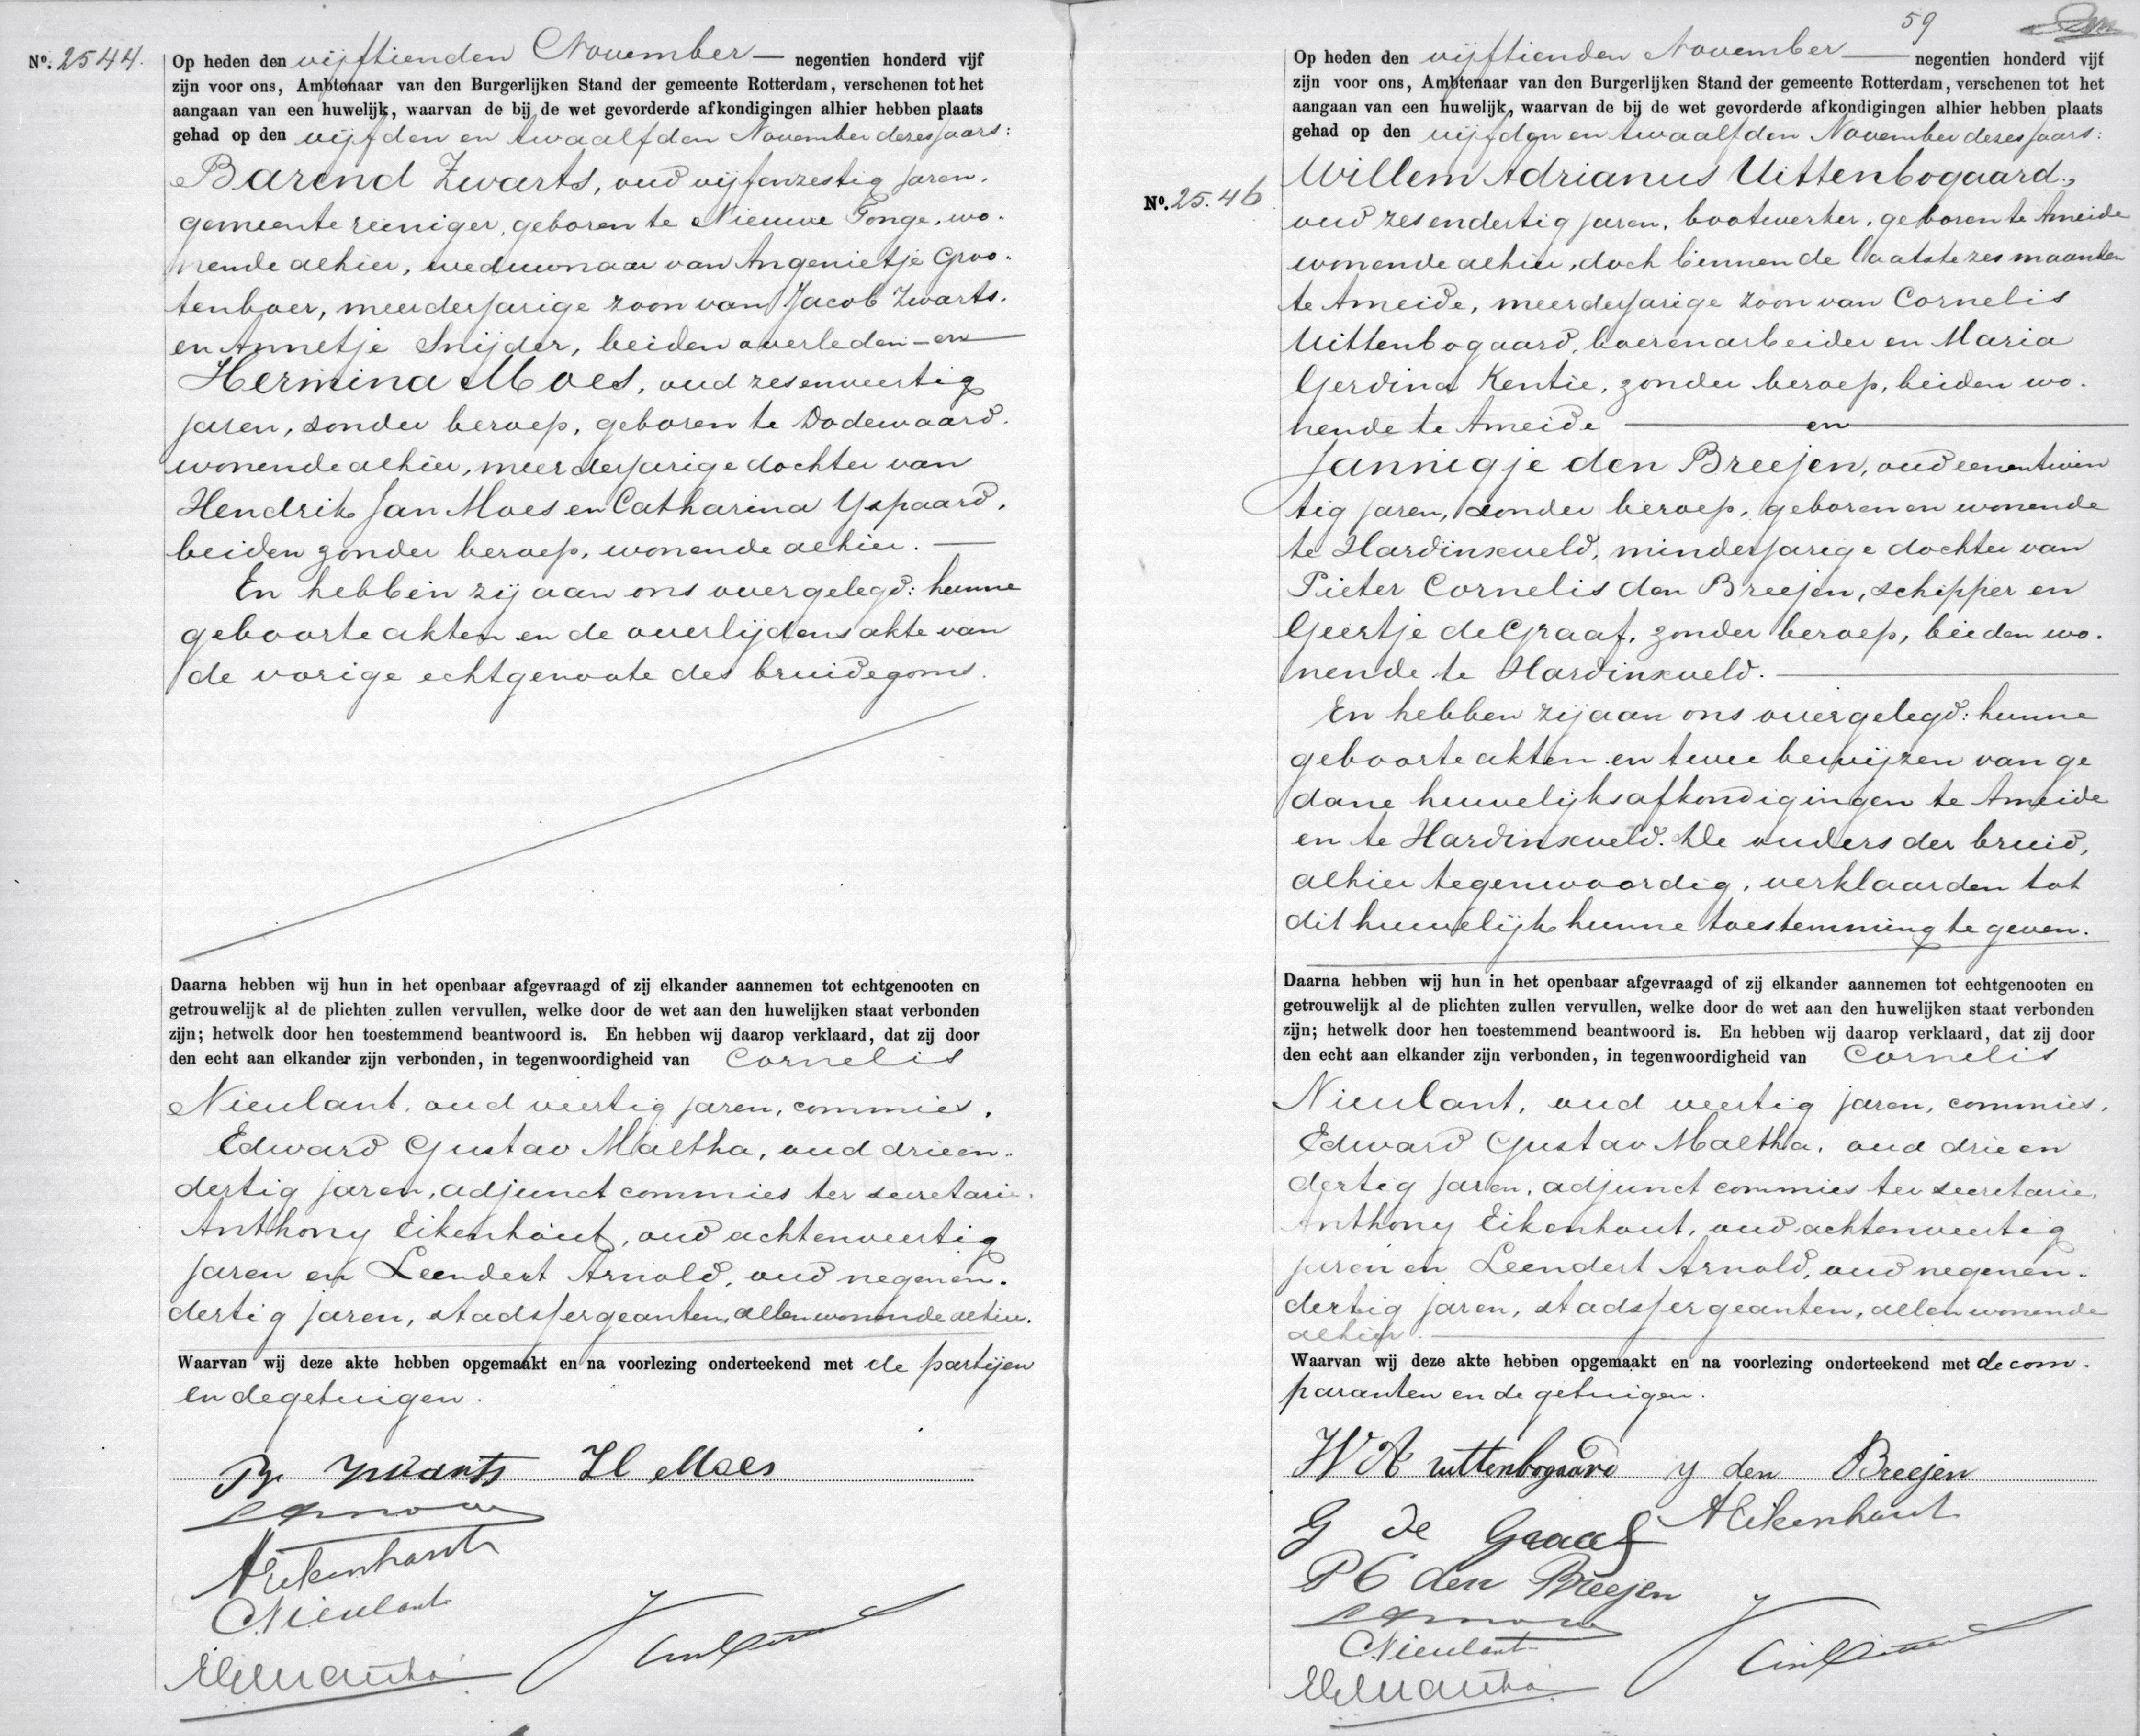 No. 2544.
Op heden den vijftienden November — negentien honderd vijf
zijn voor ons, Ambtenaar van den Burgerlijken Stand der gemeente Rotterdam, verschenen tot het
aangaan van een huwelijk, waarvan de bij de wet gevorderde afkondigingen alhier hebben plaats
gehad op den vijfden en twaalfden November dezes jaars:
Barend Zwarts, oud vijfenzestig jaren,
gemeentereiniger, geboren te Nieuwe Tonge, wo-
nende alhier, weduwnaar van Angenietje Groo-
tenboer, meerderjarige zoon van Jacob Zwarts
en Annetje Snijder, beiden overleden — en
Hermina Moes, oud zesenveertig
jaren, zonder beroep, geboren te Dodewaard,
wonende alhier, meerderjarige dochter van
Hendrik Jan Moes en Catharina Yspaard,
beiden zonder beroep, wonende alhier. —
En hebben zij aan ons overgelegd: hunne
geboorteakten en de overlijdensakte van
de vorige echtgenoote des bruidegoms.
Daarna hebben wij hun in het openbaar afgevraagd of zij elkander aannemen tot echtgenooten en
getrouwelijk al de plichten zullen vervullen, welke door de wet aan den huwelijken staat verbonden
zijn; hetwelk door hen toestemmend beantwoord is. En hebben wij daarop verklaard, dat zij door
den echt aan elkander zijn verbonden, in tegenwoordigheid van Cornelis
Nieulant, oud veertig jaren, commies,
Edward Gustav Maltha, oud drieen-
dertig jaren, adjunct commies ter secretarie,
Anthony Eikenhout, oud achtenveertig
jaren en Leendert Arnold, oud negenen-
dertig jaren, stadssergeanten, allen wonende alhier.
Waarvan wij deze akte hebben opgemaakt en na voorlezing onderteekend met de partijen
en de getuigen.
B Zwarts H Moes
L Arnold
A Eikenhout
CNieulant
EGMaltha
59
No. 25.46
Op heden den vijftienden November — negentien honderd vijf
zijn voor ons, Ambtenaar van den Burgerlijken Stand der gemeente Rotterdam, verschenen tot het
aangaan van een huwelijk, waarvan de bij de wet gevorderde afkondigingen alhier hebben plaats
gehad op den vijfden en twaalfden November dezes jaars:
Willem Adrianus Uittenbogaard,
oud zesendertig jaren, bootwerker, geboren te Ameide
wonende alhier, doch binnen de laatste zes maanden
te Ameide, meerderjarige zoon van Cornelis
Uittenbogaard, boerenarbeider en Maria
Gerdina Kentie, zonder beroep, beiden wo-
nende te Ameide — en —
Jannigje den Breejen, oud eenentwin
tig jaren, zonder beroep, geboren en wonende
te Hardinxveld, minderjarige dochter van
Pieter Cornelis den Breejen, schipper en
Geertje de Graaf, zonder beroep, beiden wo-
nende te Hardinxveld. —
En hebben zij aan ons overgelegd: hunne
geboorteakten en twee bewijzen van ge
dane huwelijksafkondigingen te Ameide
en te Hardinxveld. De ouders der bruid,
alhier tegenwoordig, verklaarden tot
dit huwelijk hunne toestemming te geven.
Daarna hebben wij hun in het openbaar afgevraagd of zij elkander aannemen tot echtgenooten en
getrouwelijk al de plichten zullen vervullen, welke door de wet aan den huwelijken staat verbonden
zijn; hetwelk door hen toestemmend beantwoord is. En hebben wij daarop verklaard, dat zij door
den echt aan elkander zijn verbonden, in tegenwoordigheid van Cornelis
Nieulant, oud veertig jaren, commies,
Edward Gustav Maltha, oud drieen
dertig jaren, adjunct commies ter secretarie,
Anthony Eikenhout, oud achtenveertig
jaren en Leendert Arnold, oud negenen-
dertig jaren, stadssergeanten, allen wonende
alhier. —
Waarvan wij deze akte hebben opgemaakt en na voorlezing onderteekend met de com-
paranten en de getuigen.
W A uittenbogaard J den Breejen
G de Graaf A Eikenhout
P C den Breejen
L Arnold
CNieulant
EGMaltha